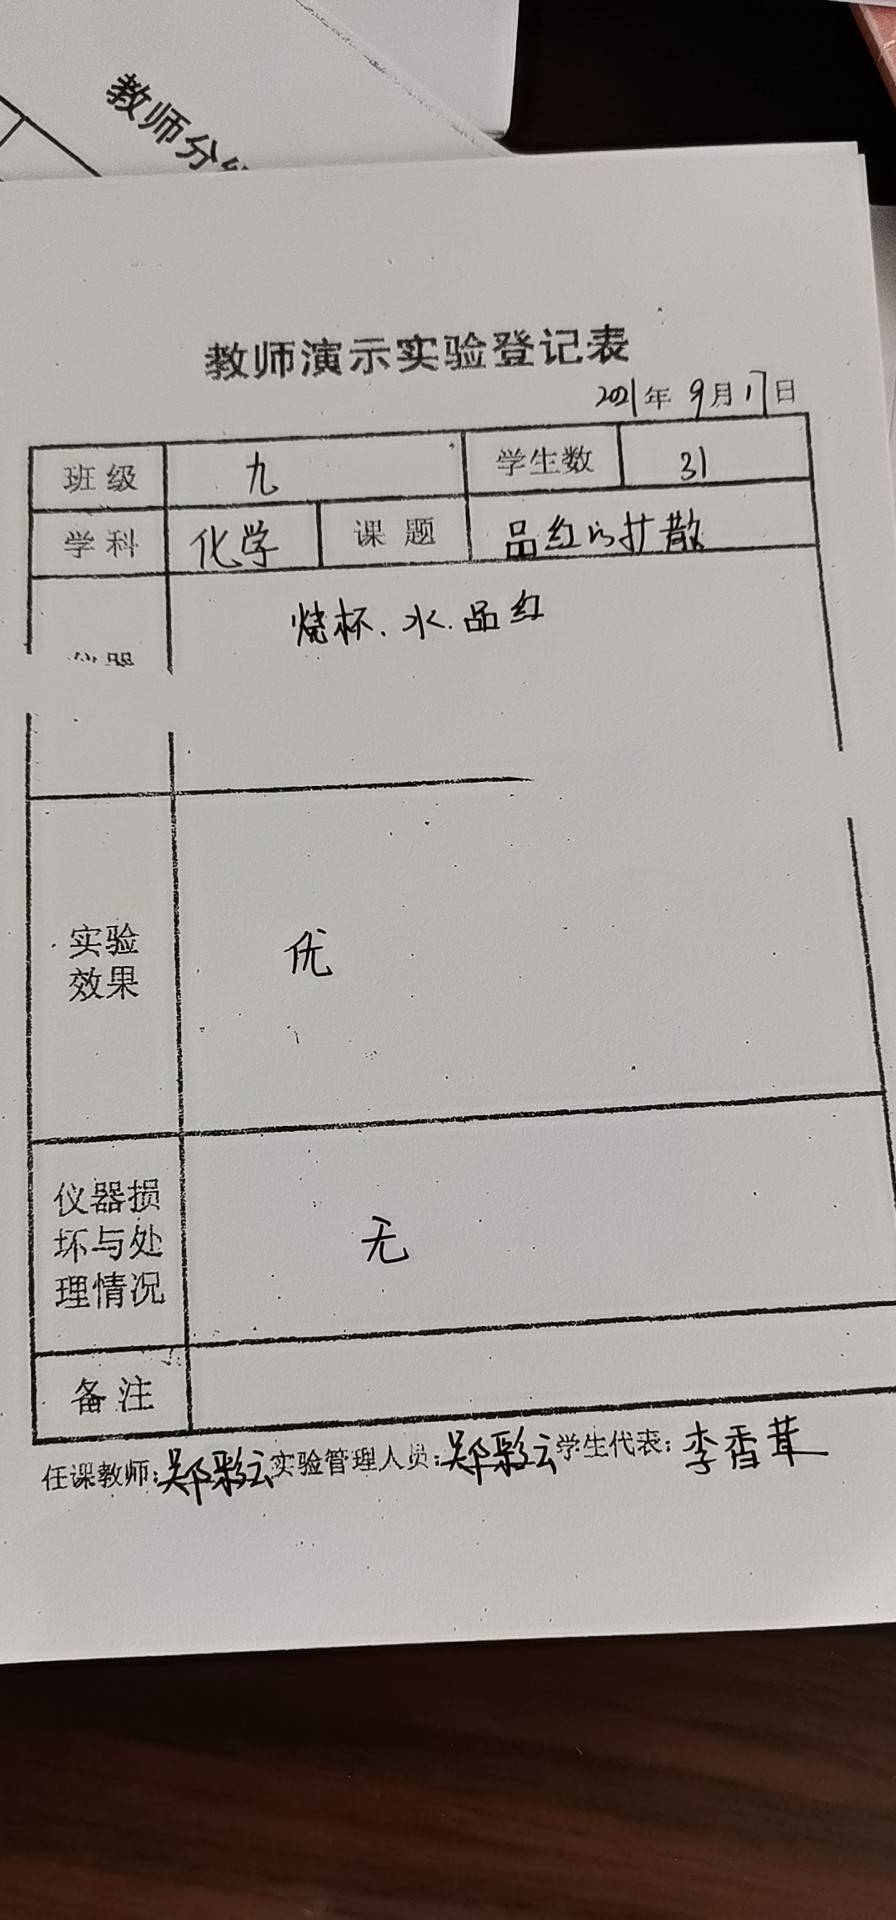 教师分
教师演示实验登记表
2021年9月17日
班级 九 学生数 31
学科 化学 课题 品红的扩散
仪器 烧杯.水.品红
实验
效果 优
仪器损
坏与处
理情况 无
备注
任课教师:郑彩云实验管理人员:郑彩云学生代表:李香茸